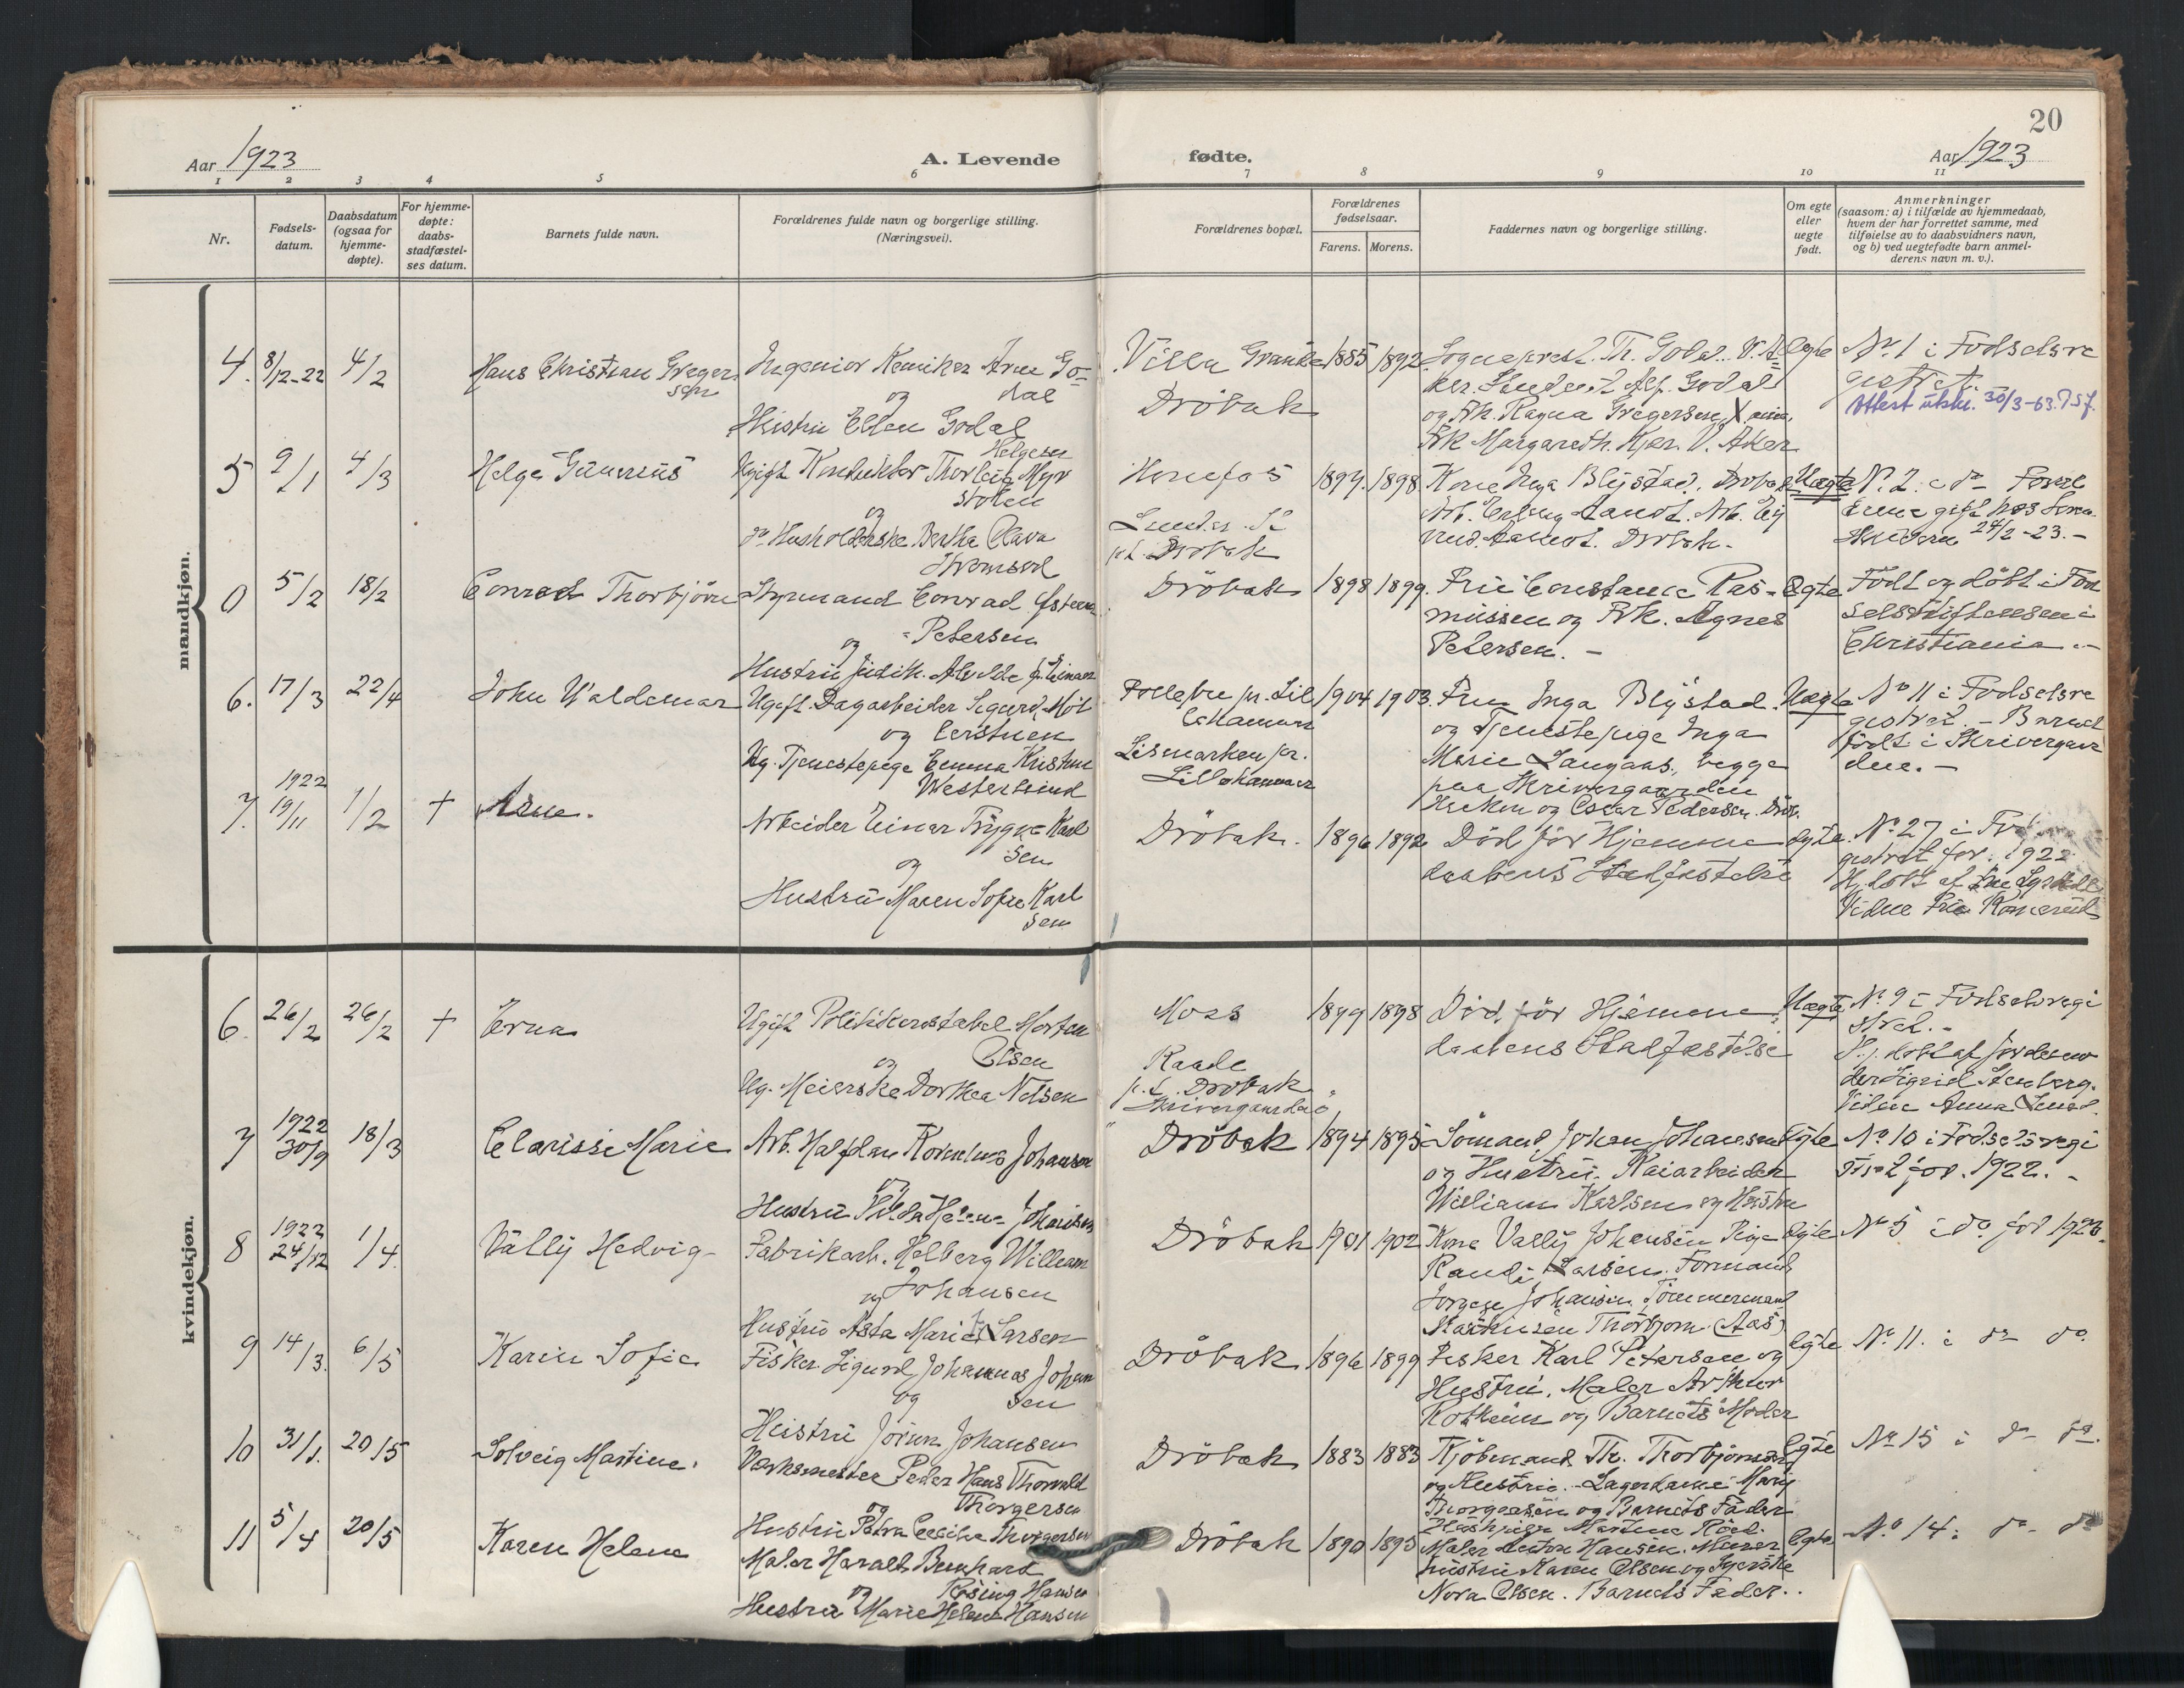 20
Aar 1923
A. Levende fødte.
Aar 1923
1 2 3 4 5 6 7 8 9 10 11
Nr.
Fødsels-
datum.
Daabsdatum
(ogsaa for
hjemme-
døpte).
For hjemme-
døpte:
daabs-
stadfæstel-
ses datum.
Barnets fulde navn.
Forældrenes fulde navn og borgerlige stilling.
(Næringsvei).
Forældrenes bopæl.
Forældrenes
fødselsaar.
Farens. Morens.
Faddernes navn og borgerlige stilling.
Om egte
eller
uegte
født.
Anmerkninger
(saasom: a) i tilfælde av hjemmedaab,
hvem der har forrettet samme, med
tilføielse av to daabsvidners navn,
og b) ved uegtefødte barn anmel-
derens navn m. v.).
mandkjøn.
4. 8/12-22 4/2
Hans Christian Greger
sen
Ingeniør Kemiker Arne Go-
og dal
Hustru Ellen Godal
Villa Granli
Drøbak
1885 1892
Sogneprest. Th. Godal. V. A
ker. Student Alf. Godal
og Frk. Ragna Gregersen, X.ania,
Frk Margareth. Kjær. V. Aker
Egte
No. 1 i Fødselsre
gistret.
Attest utskr. 30/3-63.
5 9/1 4/3
Helge Gunerius
Helgesen
Ugift Konduktør Thorleif Myr
stoken
og
do Husholderske Bertha Olava
Strømsod
Hønefos
p.t. Drøbak
1899. 1898
Kone Inga Blystad, Drøbak
Arb. Erling Aamot. Arb. Ey
vind. Aamot. Drøbak.
Uægte
No. 2. i do Foræl
drene gift hos Soren
skriveren 24/2-23.-
0 5/2 18/2
Conrad Thorbjørn
Styrmand Conrad
og Petersen
Hustru Judith. Alvilde f. Einarsen
Drøbak
1898 1899.
Fru Constance Ras-
mussen og Frk. Agnes
Petersen.-
Egte
Født og døbt i Fød
selsstiftelsen i
Christiania.-
6. 17/3 22/4
John Waldemar
Ugift. Dagarbeider Sigurd
og
Ug. Tjenestepige Emma Kristine
Westerlund
Follebu pr. Lil
lehammer
Lismarken pr.
Lillehammer
1904 1903.
Fru Inga Blystad
og Tjenestepige Inga
Marie Langaas, begge
paa Skrivergaarden
og Oscar Pedersen. Drøb.
Uægte
No 11 i Fødselsre
gistret.- Barnet
født i Skrivergaar
den.-
7. 1922
19/11 1/2 +
Arne.
Arbeider Einar Trygve Karl
og sen
Hustru Maren Sofie Karl
sen
Drøbak.
1896 1892
Død før Hjemme
daabens Stadfæstelse
Egte.
No. 27 i
gistret for. 1922
Hj. døbt af
Vidne Fru Romerud
kvindekjøn.
6. 26/2 26/2 +
Erna
Ugift Politikonstabel Morten
og Olsen
Ug. Meierske Dorthea Nilsen
Moss
Raade
p.t. Drøbak
Skrivergaarden
1899 1898
Død. før Hjemme
daabens Stadfæstelse
Uægte
No. 9 i Fødselsregi
stret.-
Hj. døbt af Jordemo
der Sigrid Stenberg.
Vidne Anna Lund.
7 1922
30/9 18/3
Clarisse Marie
Arb. Halfdan Kornelius Johansen
og
Hustru Hilda Helene Johansen
Drøbak
1894 1895
Sømand Johan Johansen
og Hustru. Kaiarbeider
William Karlsen og Hustru
Egte
No. 10 i Fødselsregi
stret for. 1922.-
8 1922
24/12 1/4.
Vally Hedvig
Fabrikarb. Helberg William
og Johansen
Hustru Asta Marie f. Larsen
Drøbak
1901 1902
Kone Vally Johansen Pige
Randi Larsen. Formand
Jørgen Johansen. Tømmermand
Mathisen Thorbjørn (Aas)
Egte
No 5 i do for 1923.
9 14/3. 6/5
Karin Sofie
Fisker Sigurd Johannes Johan
og sen
Hustru Jørun Johansen
Drøbak
1896 1899
Fisker Karl Petersen og
Hustru, Maler Arthur
og Barnets Moder
Egte
No. 11. i do do
10 31/1. 20/5
Solveig Martine.
Værksmester Peder Hans Thorvald
og Thorgersen
Hustru Petra Cecilie Thorgersen
Drøbak
1883 1883
Kjøbmand Th. Thorbjørnsen
og Hustru.- Lagerdame Mary
Thorgersen og Barnets Fader
Martine
Egte
No 15 i do do.
11 5/4 20/5
Karen Helene
Maler Harald Bernhard
og Røsing Hansen
Hustru Marie Helene Hansen
Drøbak
1890 1895
Maler Anton Hansen. Murer
hustru Karen Olsen og Syerske
Nora Olsen. Barnets Fader.
Egte
No. 14 i do do